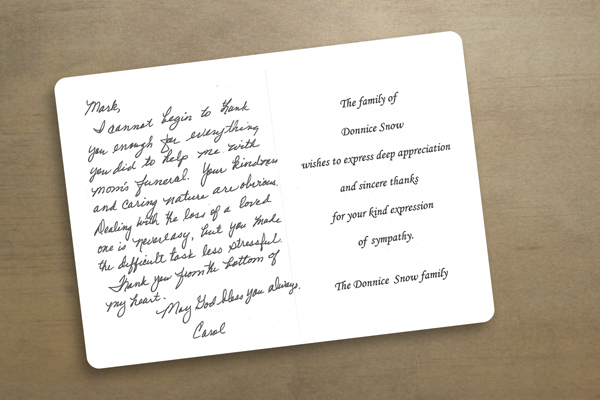 Mark,
I cannot begin to thank
you enough for everything
you did to help me with
mom's funeral. Your kindness
and caring nature are obvious.
Dealing with the loss of a loved
one is never easy, but you made
the difficult task less stressful.
Thank you from the bottom of
my heart.
May God bless you always.
Carol
The family of
Donnice Snow
wishes to express deep appreciation
and sincere thanks
for your kind expression
of sympathy.
The Donnice Snow family